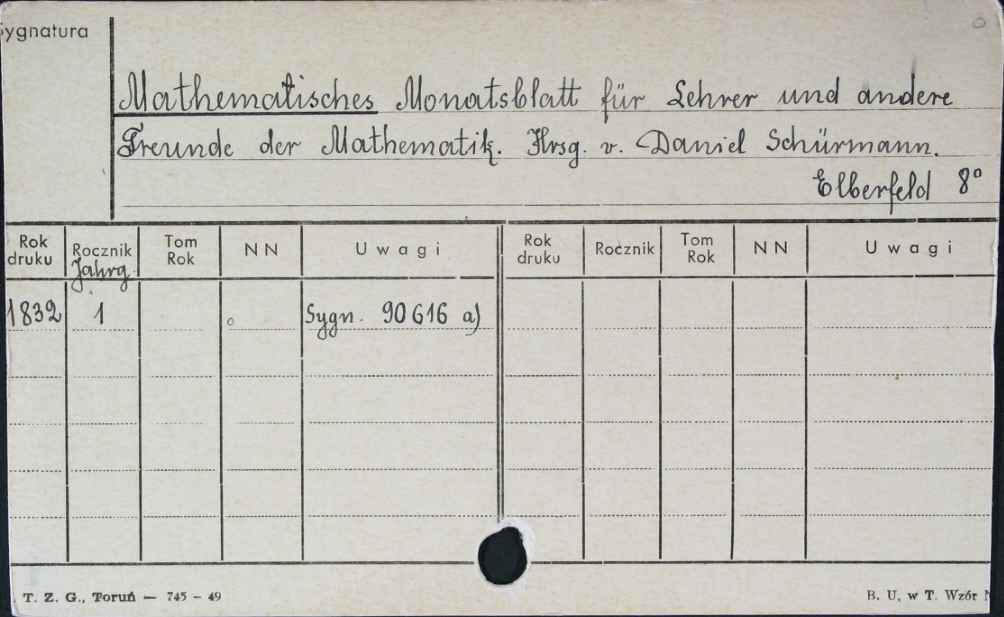 Sygnatura
Mathematisches Monatsblatt für Lehrer und andere
Freunde der Mathematik. Hrsg. v. Daniel Schürmann.
Elberfeld 8°
Rok druku Rocznik Jahrg. Tom Rok NN Uwagi Rok druku Rocznik Tom Rok NN Uwagi
1832 1 Sygn. 90616 a)
T. Z. G., Toruń — 745 - 49 B. U. w T. Wzór